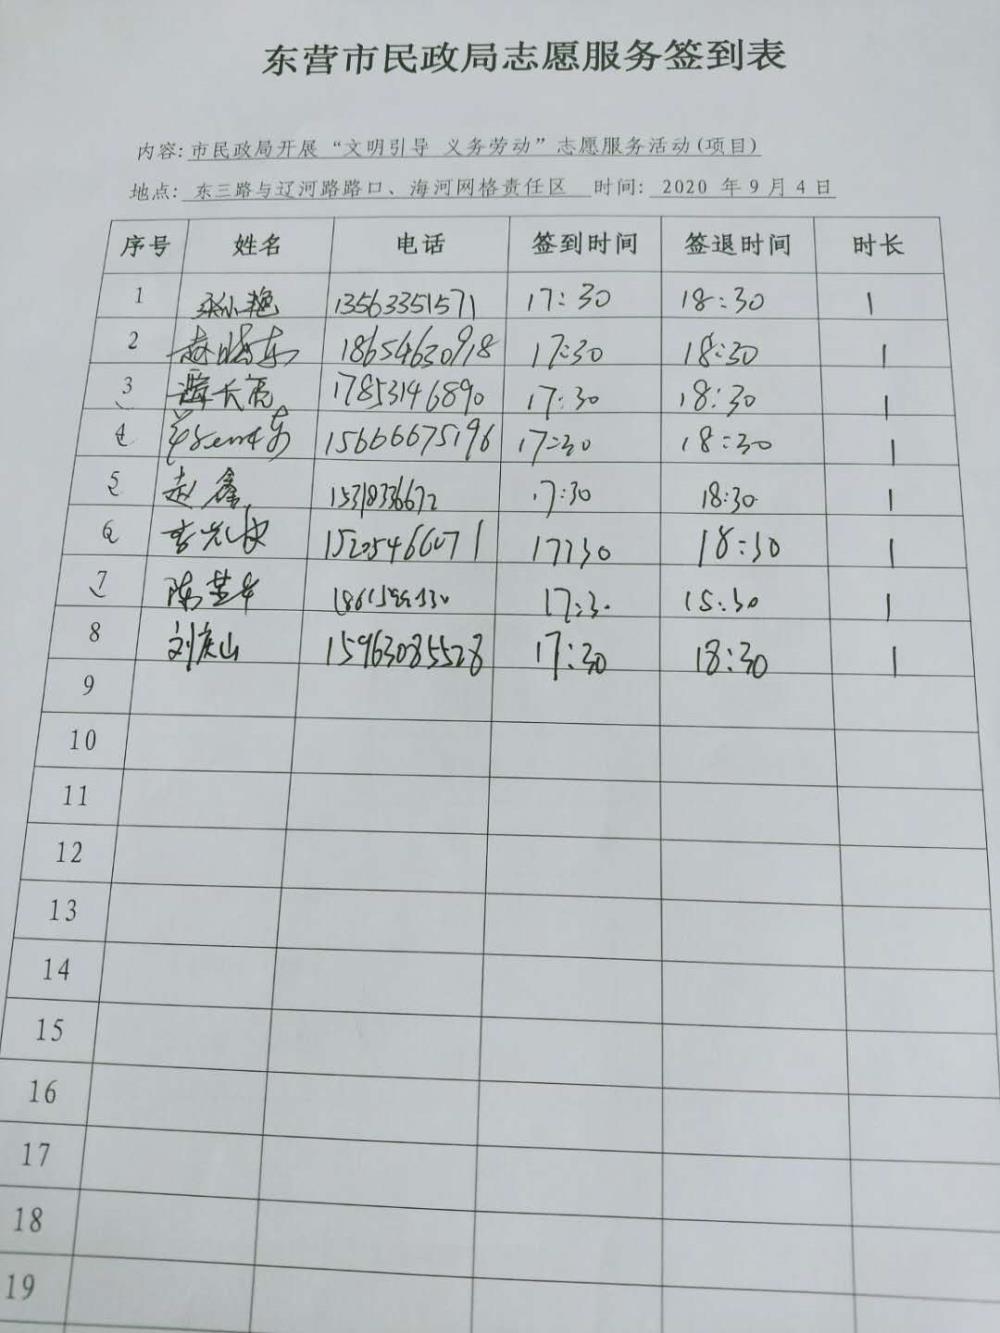 东营市民政局志愿服务签到表
内容:市民政局开展“文明引导 义务劳动”志愿服务活动(项目)
地点: 东三路与辽河路路口、海河网格责任区 时间: 2020 年9月4日
序号 姓名 电话 签到时间 签退时间 时长
1 13563351571 17:30 18:30 1
2 赵晓东 18654630918 17:30 18:30 1
3 17853146890 17:30 18:30 1
4 15666675196 17:30 18:30 1
5 赵鑫 15318336672 17:30 18:30 1
6 15205466071 17:30 18:30 1
7 陈苹华 17:30 15:30 1
8 刘庆山 15963085528 17:30 18:30 1
9
10
11
12
13
14
15
16
17
18
19